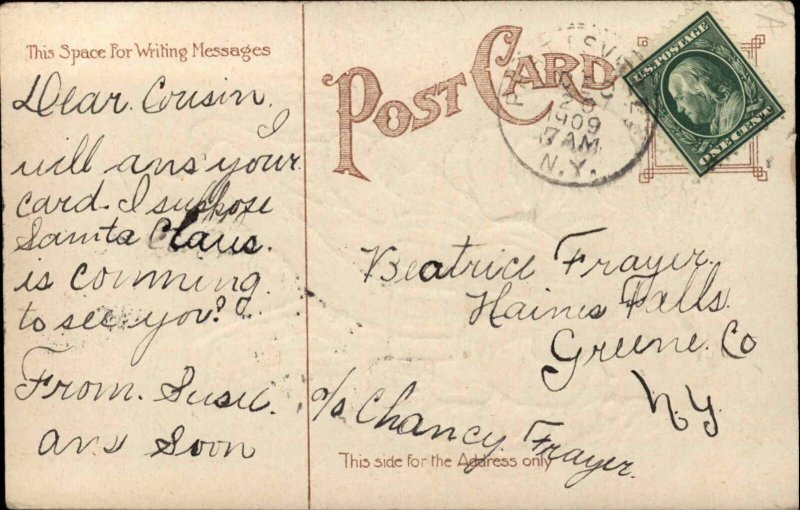 This Space For Writing Messages
Dear. Cousin.
I
will ans your
card. I suppose
Santa Claus.
is comming
to see you?
From. Susie.
ans Soon
POST CARD
1909
7 AM
N.Y.
U.S. POSTAGE
ONE CENT
Beatrice Frayer.
Haines Falls.
Greene. Co
N.Y.
c/o Chancy Frayer.
This side for the Address only